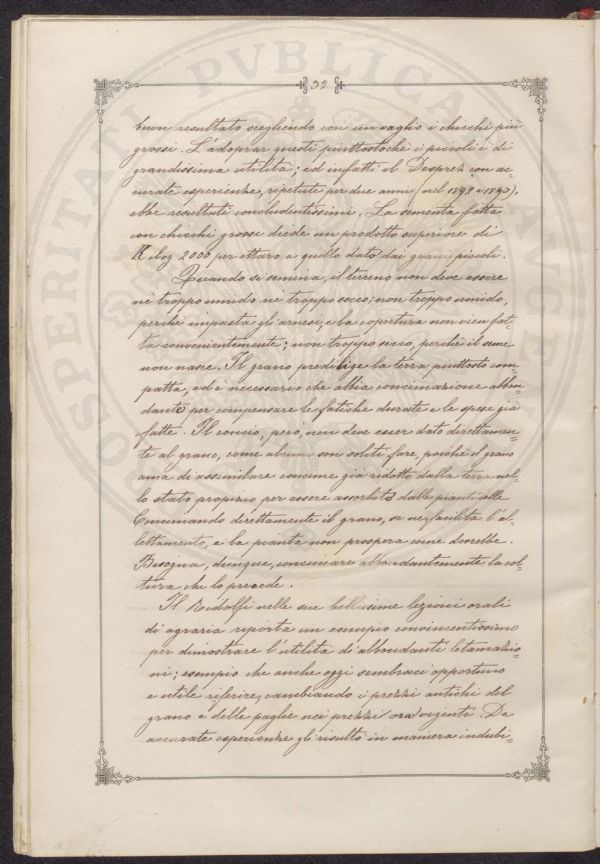 32
buon resultato scegliendo con un vaglio i chicchi più
grossi. L'adoprar questi piuttostochè i piccoli è di
grandissima utilità; ed infatti il Desprez con ac-
curate esperienze, ripetute per due anni (nel 1892 e 1893),
ebbe resultati concludentissimi. La sementa fatta
con chicchi grossi diede un prodotto superiore di
Kilog 2000 per ettaro, a quello dato dai grani piccoli.
Quando si semina, il terreno non deve essere
nè troppo umido nè troppo secco; non troppo umido,
perchè impasta gli arnesi, e la copertura non vien fat-
ta convenientemente; non troppo secco, perchè il seme
non nasce. Il grano predilige la terra piuttosto com
patta, ed è necessario che abbia concimazione abbon
dante per compensare le fatiche durate e le spese già
fatte. Il concio, però, non deve esser dato direttamen-
te al grano, come alcuni son soliti fare, poichè il grano
ama di assimilare concime già ridotto dalla terra nel-
lo stato proprio per essere assorbito dalle pianticelle
Concimando direttamente il grano, se ne facilita l'al-
lettamento, e la pianta non prospera come dovrebbe.
Bisogna, dunque, concimare abbondantemente la col-
tura che lo precede.
Il Ridolfi nelle sue bellissime lezioni orali
di agraria riporta un esempio convincentissimo
per dimostrare l'utilità di abbondanti letamazio-
ni; esempio che anche oggi sembraci opportuno
e utile riferire, cambiando i prezzi antichi del
grano e delle paglie nei prezzi ora vigenti. Da
accurate esperienze gli risultò in maniera indubi-
PROSPERITATI PUBLICAE AUGENDAE